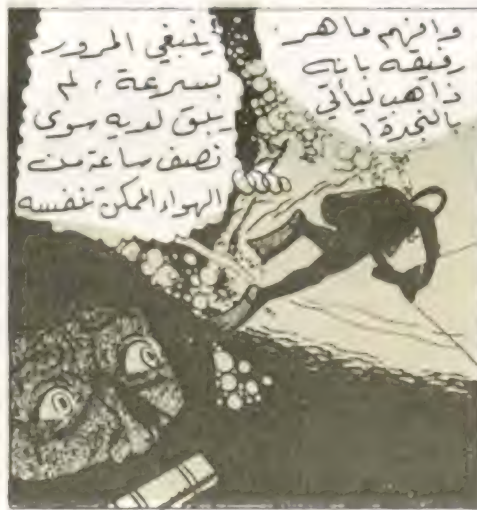 وافهم ماهر
رفيقه بانه
ذاهب ليأتي
بالنجدة!
ينبغي المرور
بسرعة ، لم
يبق لديه سوى
نصف ساعة من
الهواء الممكن تنفسه